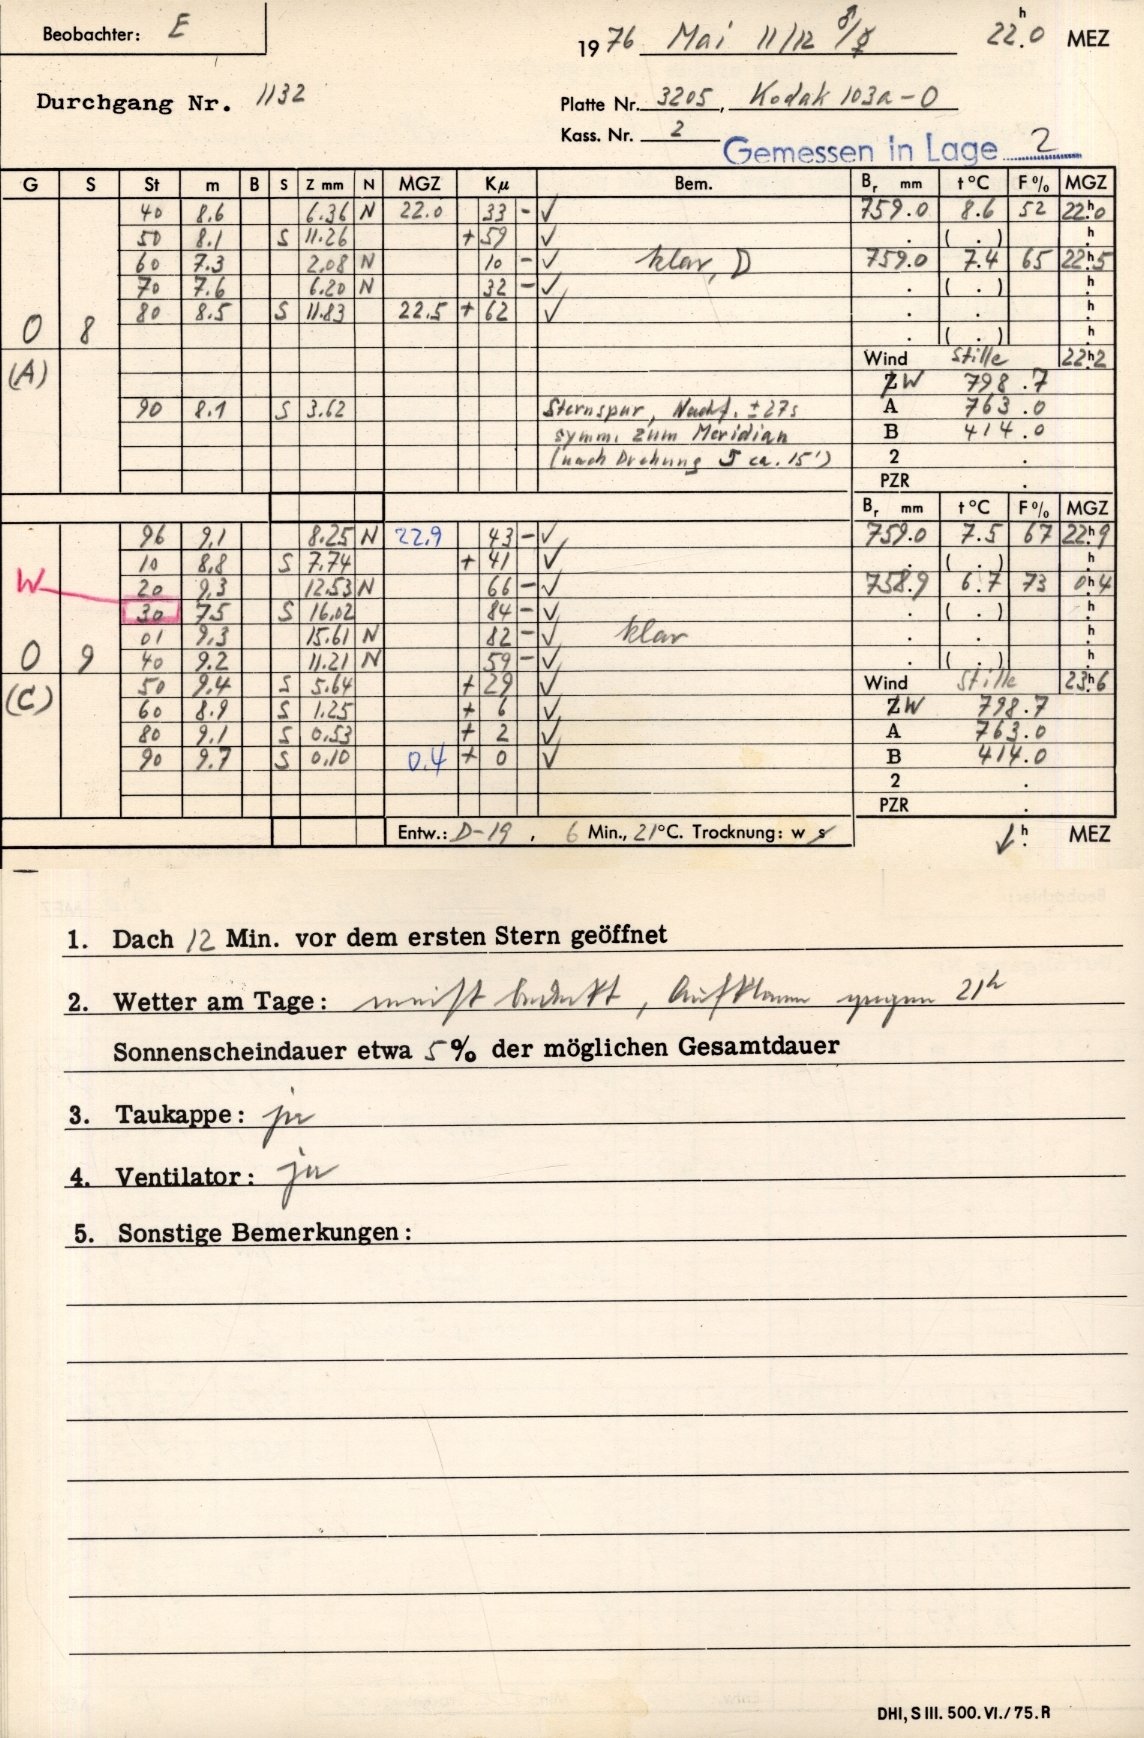 Beobachter: E
1976 Mai 11/12 ♂/☿ 22.0 h MEZ
Durchgang Nr. 1132
Platte Nr. 3205, Kodak 103a-O
Kass. Nr. 2
Gemessen in Lage 2
G S St m B S Z mm N MGZ Kμ Bem. Br mm t°C F% MGZ
40 8.6 6.36 N 22.0 33 - √ 759.0 8.6 52 22h0
50 8.1 S 11.26 + 59 √ . ( . ) h
60 7.3 2.08 N 10 - √ klar, D 759.0 7.4 65 22h5
70 7.6 6.20 N 32 - √ . ( . ) h
80 8.5 S 11.83 22.5 + 62 √ . . h
0 8 . ( . ) h
(A) Wind Stille 22h2
ZW 798.7
90 8.1 S 3.62 Sternspur, Nachf. ±27s A 763.0
symm. zum Meridian B 414.0
(nach Drehung ca. 15') 2 .
PZR .
Br mm t°C F% MGZ
96 9.1 8.25 N 22.9 43 - √ 759.0 7.5 67 22h9
10 8.8 S 7.74 + 41 √ . ( . ) h
W 20 9.3 12.53 N 66 - √ 758.9 6.7 73 0h4
30 7.5 S 16.02 84 - √ . ( . ) h
01 9.3 15.61 N 82 - √ klar . . h
0 9 40 9.2 11.21 N 59 - √ . ( . ) h
(C) 50 9.4 S 5.64 + 29 √ Wind Stille 23h6
60 8.9 S 1.25 + 6 √ ZW 798.7
80 9.1 S 0.53 + 2 √ A 763.0
90 9.7 S 0.10 0.4 + 0 √ B 414.0
2 .
PZR .
Entw.: D-19, 6 Min., 21°C. Trocknung: w s h. MEZ
1. Dach 12 Min. vor dem ersten Stern geöffnet
2. Wetter am Tage: meist bedeckt, Aufklaren gegen 21h
Sonnenscheindauer etwa 5% der möglichen Gesamtdauer
3. Taukappe: ja
4. Ventilator: ja
5. Sonstige Bemerkungen:
DHI, S III. 500. VI./75. R